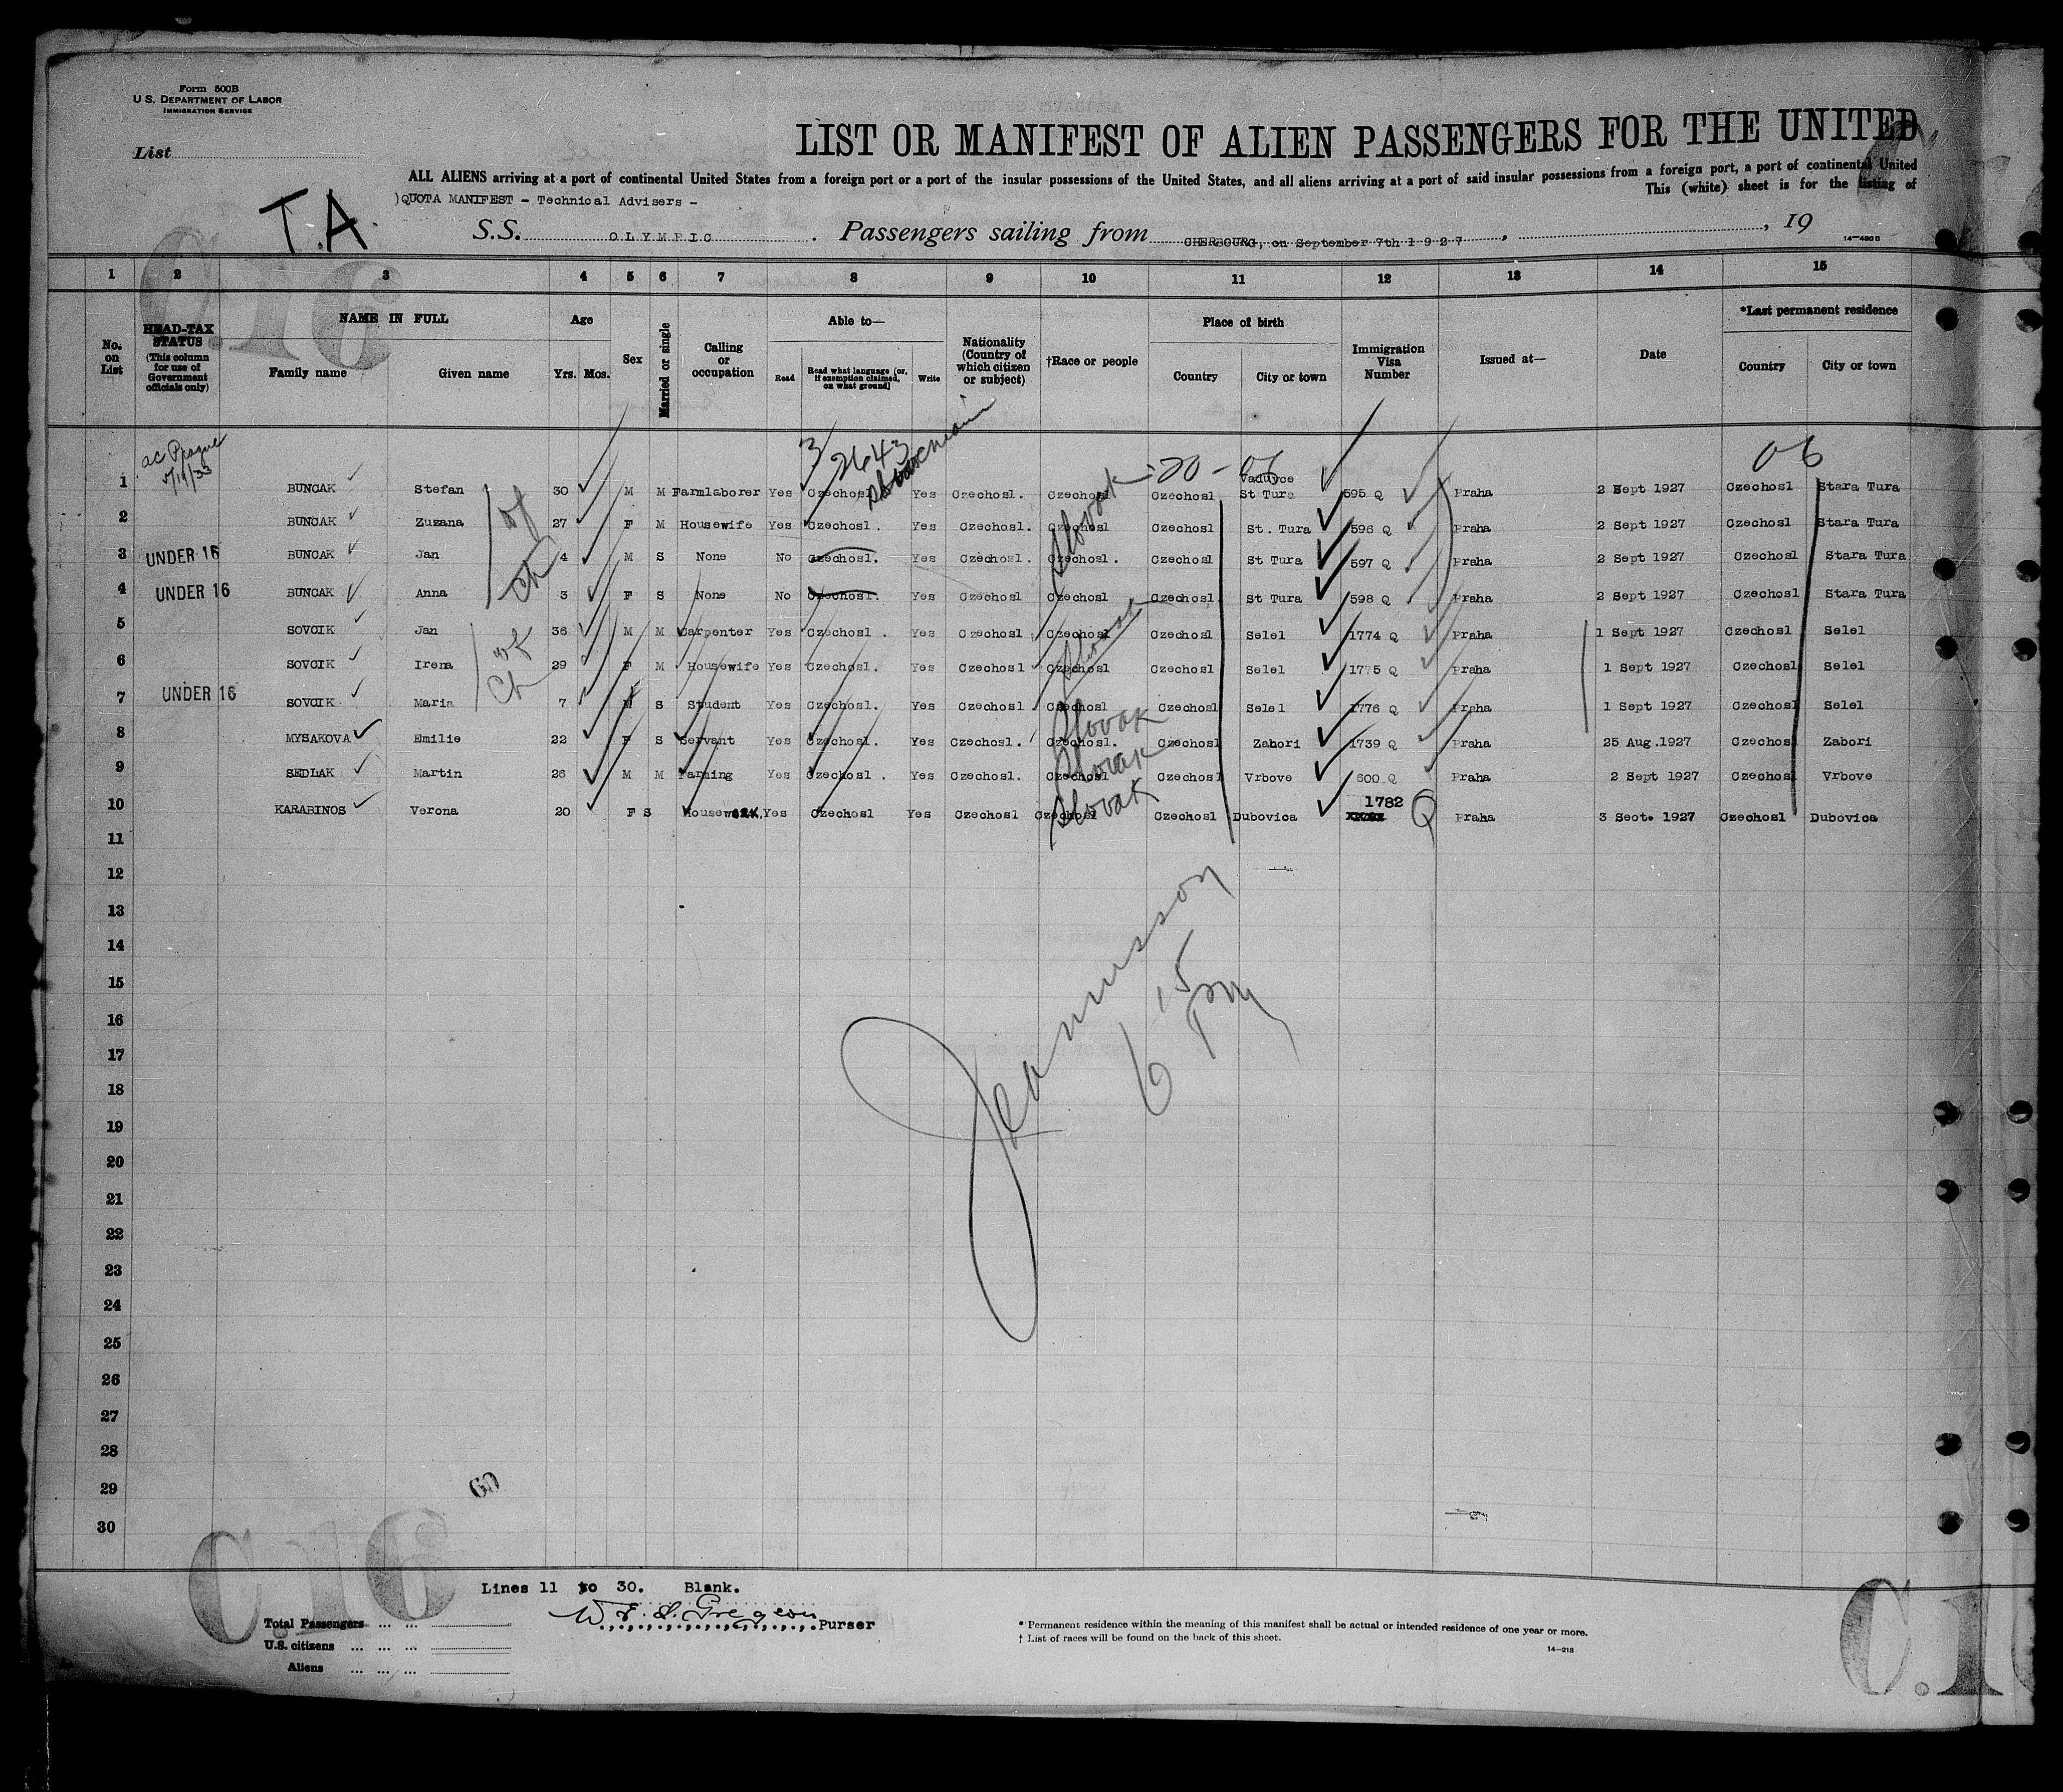 Form 500B
U.S. DEPARTMENT OF LABOR
IMMIGRATION SERVICE
List
LIST OR MANIFEST OF ALIEN PASSENGERS FOR THE UNITED
ALL ALIENS arriving at a port of continental United States from a foreign port or a port of the insular possessions of the United States, and all aliens arriving at a port of said insular possessions from a foreign port, a port of continental United
This (white) sheet is for the listing of
)QUOTA MANIFEST - Technical Advisers -
T.A.
S.S. OLYMPIC . Passengers sailing from CHERBOURG, on September 7th 1927 , , 19
14-480 B
C.16
1 2 3 4 5 6 7 8 9 10 11 12 13 14 15
No. on List
HEAD-TAX STATUS (This column for use of Government officials only)
NAME IN FULL
Family name Given name
Age
Yrs. Mos.
Sex
Married or single
Calling or occupation
Able to—
Read
Read what language (or, if exemption claimed, on what ground)
Write
Nationality (Country of which citizen or subject)
†Race or people
Place of birth
Country City or town
Immigration Visa Number
Issued at—
Date
*Last permanent residence
Country City or town
ac Prague
3 2643
06
1 BUNCAK Stefan 30 M M Farmlaborer Yes Czechosl Yes Czechosl. Czechosl Slovak Czechosl Vaduvce St Tura 595 Q Praha 2 Sept 1927 Czechosl Stara Tura
2 BUNCAK Zuzana 27 F M Housewife Yes Czechosl. Yes Czechosl. Czechosl Czechosl St. Tura 596 Q Praha 2 Sept 1927 Czechosl Stara Tura
3 UNDER 16 BUNCAK Jan 4 M S None No Czechosl. Yes Czechosl. Czechosl. Czechosl St Tura 597 Q Praha 2 Sept 1927 Czechosl Stara Tura
4 UNDER 16 BUNCAK Anna 3 F S None No Czechosl. Yes Czechosl Czechosl Czechosl St Tura 598 Q Praha 2 Sept 1927 Czechosl Stara Tura
5 SOVCIK Jan 36 M M Carpenter Yes Czechosl. Yes Czechosl Czechosl Slovak Czechosl Selel 1774 Q Praha 1 Sept 1927 Czechosl Selel
6 SOVCIK Irena 29 F M Housewife Yes Czechosl. Yes Czechosl Czechosl Czechosl Selel 1775 Q Praha 1 Sept 1927 Czechosl Selel
7 UNDER 16 SOVCIK Maria 7 S Student Yes Czechosl. Yes Czechosl Czechosl Czechosl Selel 1776 Q Praha 1 Sept 1927 Czechosl Selel
8 MYSAKOVA Emilie 22 F S Servant Yes Czechosl. Yes Czechosl. Czechosl. Slovak Czechosl Zahori 1739 Q Praha 25 Aug.1927 Czechosl Zabori
9 SEDLAK Martin 26 M M Farming Yes Czechosl. Yes Czechosl. Czechosl Slovak Czechosl Vrbove 600 Q Praha 2 Sept 1927 Czechosl Vrbove
10 KARABINOS Verona 20 F S Housework, Yes Czechosl Yes Czechosl Czechosl Slovak Czechosl Dubovica 1782 Q Praha 3 Seot. 1927 Czechosl Dubovica
11
12
13
14
15
16
17
18
19
20
21
22
23
24
25
26
27
28
29
30
6 15 pm
60
C.16
Lines 11 to 30. Blank.
Purser
Total Passengers ... ...
U.S. citizens ... ... ...
Aliens ... ... ...
* Permanent residence within the meaning of this manifest shall be actual or intended residence of one year or more.
† List of races will be found on the back of this sheet.
14-213
C.1